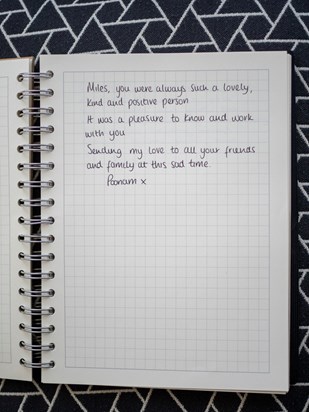 Miles, you were always such a lovely,
kind and positive person
It was a pleasure to know and work
with you
Sending my love to all your friends
and family at this sad time.
Poonam x